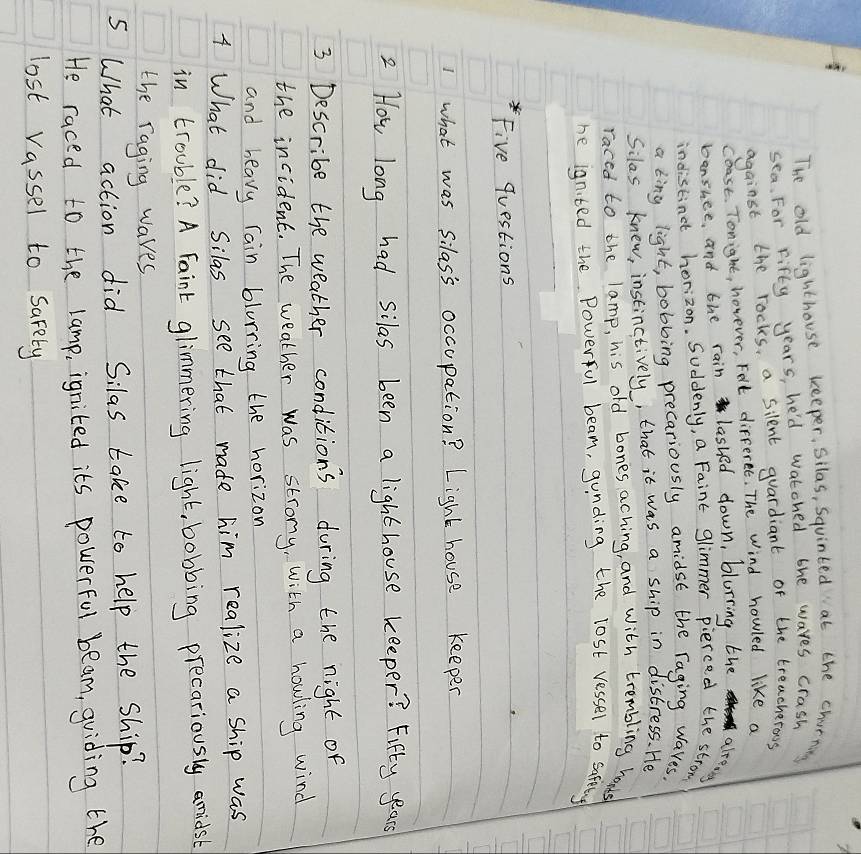 The old lighthouse keeper, Silas, squinted at the churning
sea. For fifty years, he'd watched the waves crash
against the rocks, a silent guardiant of the treacherous
coast. Tonight, however, felt differet. The wind howled like a
banshee, and the rain lashed down, blurring the already
indistinct horizon. Suddenly, a faint glimmer pierced the strom
a ting light, bobbing precariously amidst the raging waves.
Silas knew, instinctively, that it was a ship in distress. He
raced to the lamp, his old bones aching, and with trembling hands
he ignited the powerful beam, gunding the lost vessel to safety
* Five questions
1 what was Silas's occupation? Light house keeper
2 How long had Silas been a lighthouse keeper? Fifty years
3 Describe the weather conditions during the night of
the incident. The weather was stromy, with a howling wind
and heavy rain blurring the horizon
4 What did Silas see that made him realize a ship was
in trouble? A faint glimmering light, bobbing precariously amidst
the raging waves
5 What action did Silas take to help the ship?
He raced to the lamp, ignited its powerful beam, guiding the
lost vassel to safety